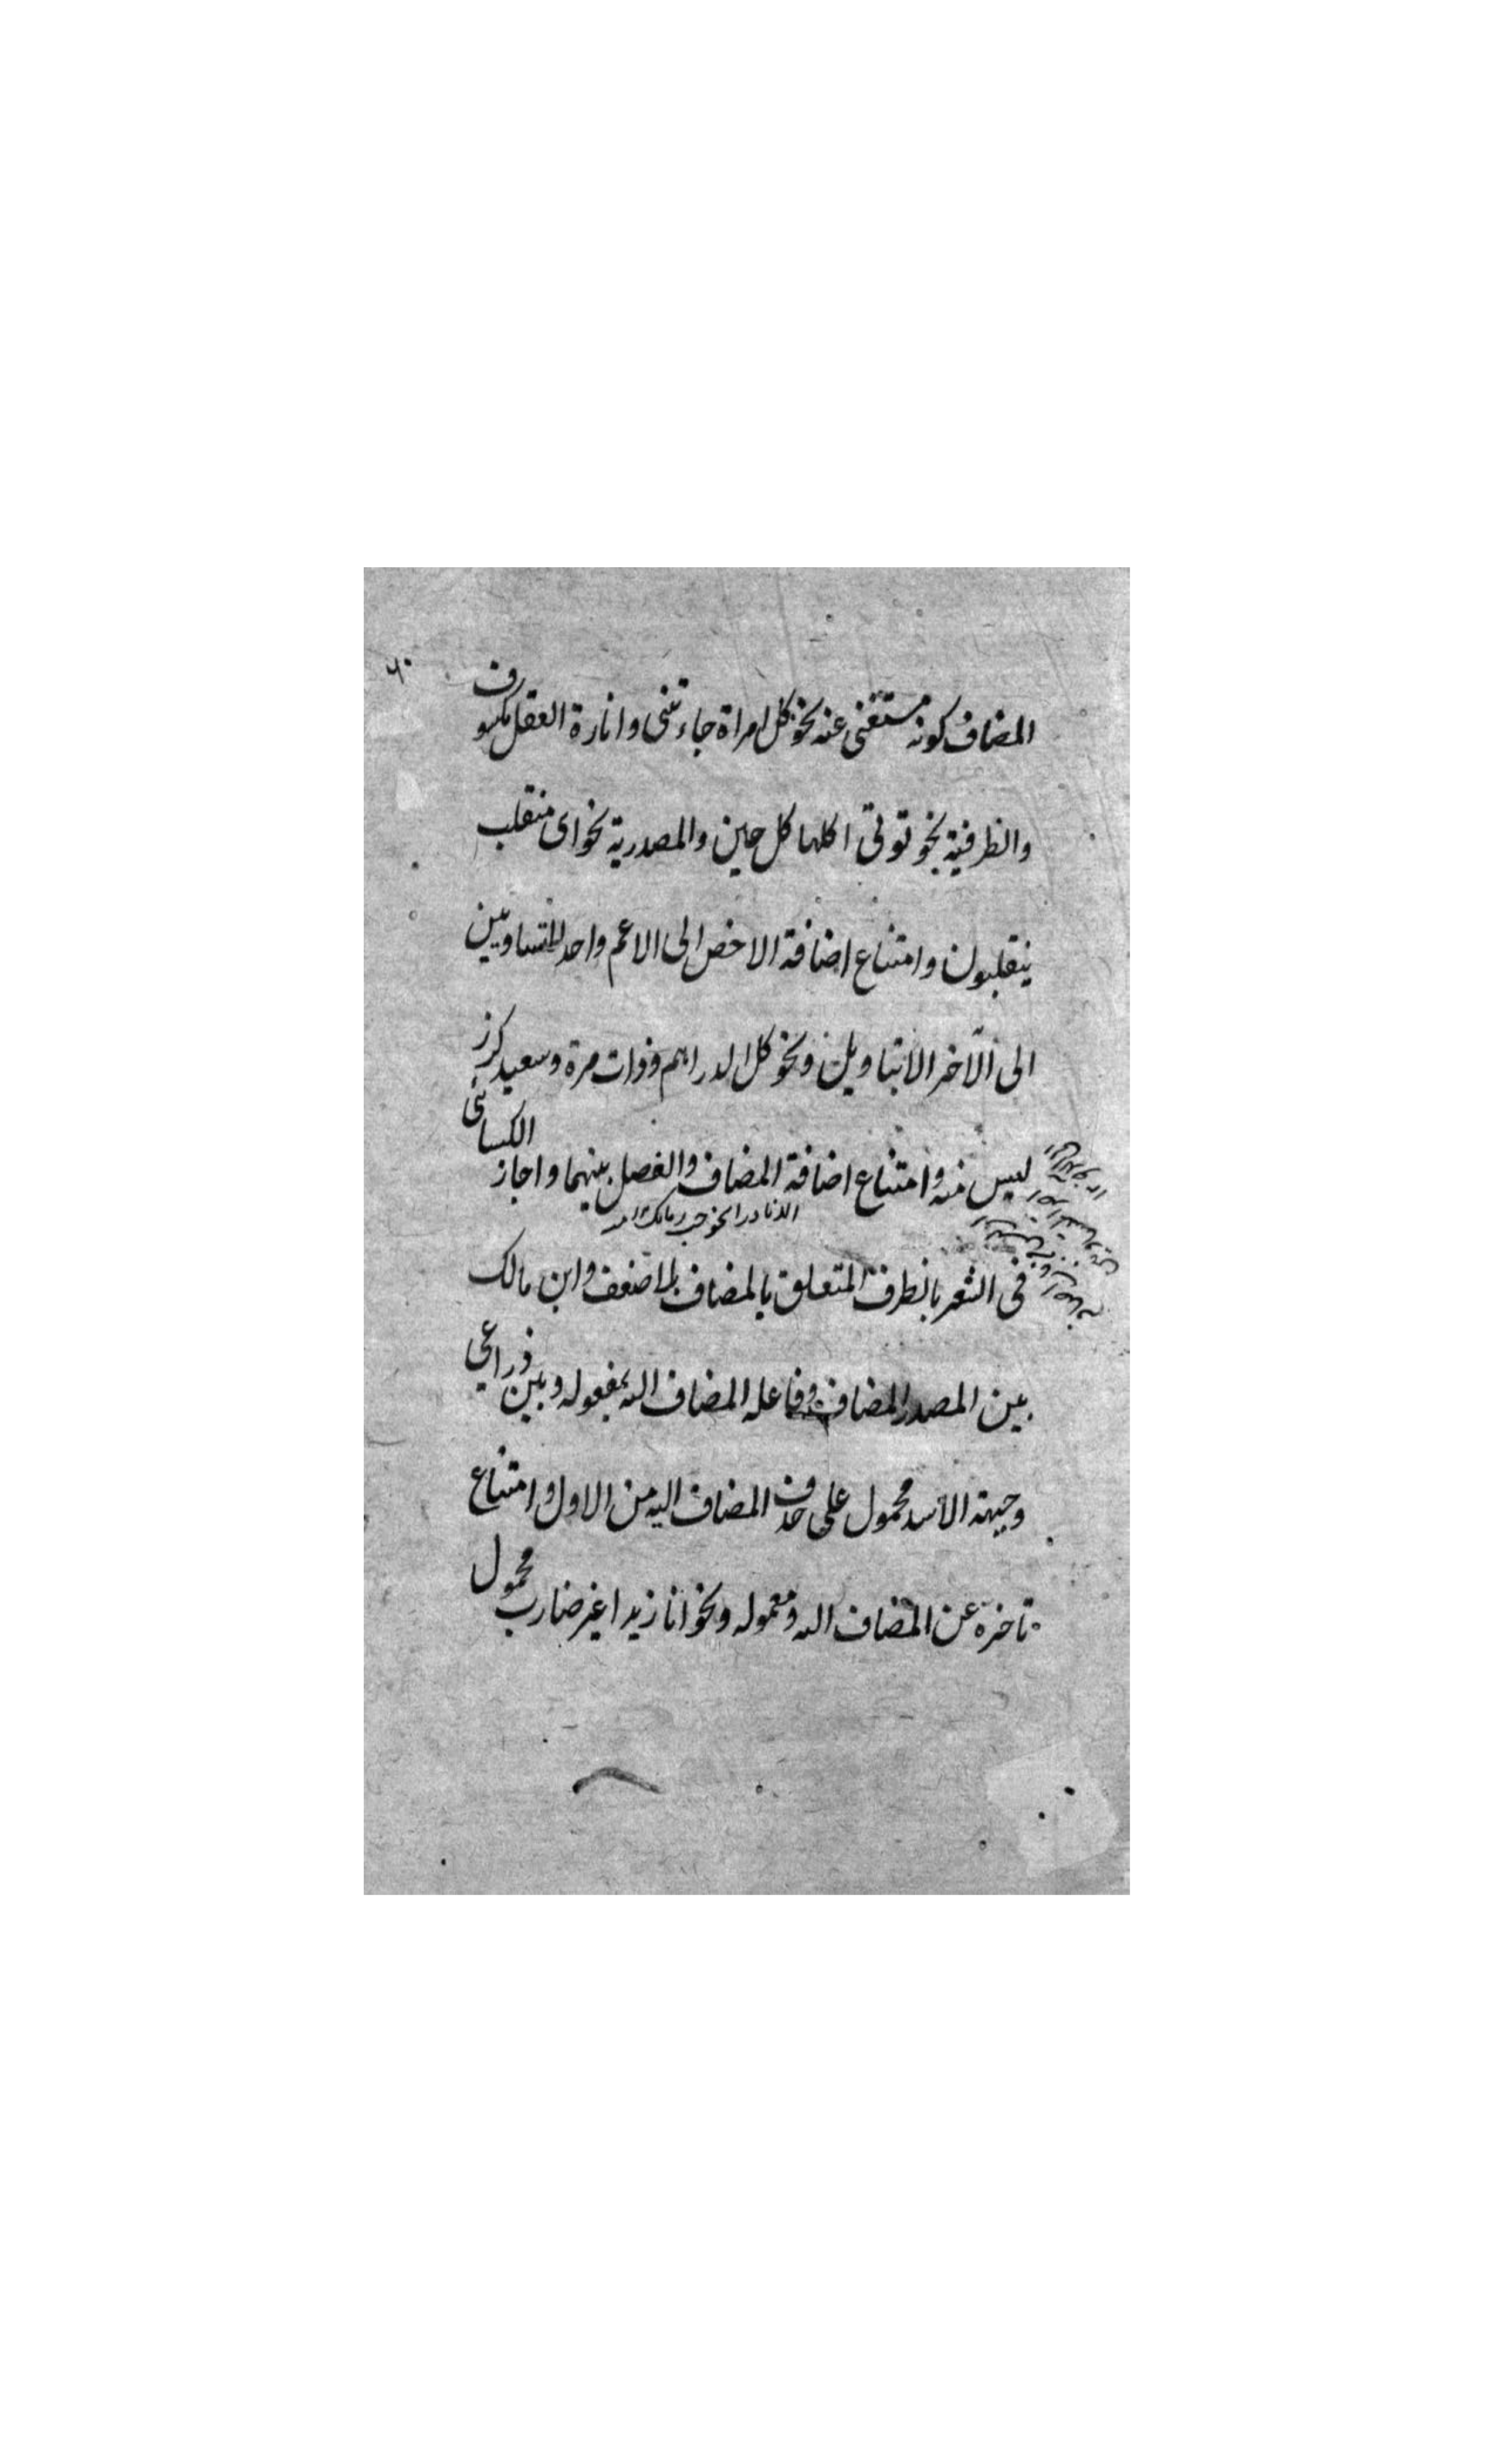 ٦٠
المضاف كونه مستغنى عنه نحو كل امراة جاءتنى وانارة العقل مكسوف
والظرفية نحو توتى اكلها كل حين والمصدرية نحو اى منقلب
ينقلبون وامتناع اضافة الاخص الى الاعم واحد المتساويين
الى الآخر الا بتاويل ونحو كل الدراهم وذات مرة وسعيد كرز
ليس منه وامتناع اضافة المضاف والفصل بينهما واجاز الكسائى
فى الشعر بالظرف المتعلق بالمضاف بلا ضعف وابن مالك
بين المصدر المضاف وفاعله المضاف اليه بمفعوله وبين ذراعي
وجبهة الاسد محمول على حذف المضاف اليه من الاول وامتناع
تاخره عن المضاف اليه ومعموله ونحو انا زيدا غير ضارب محمول